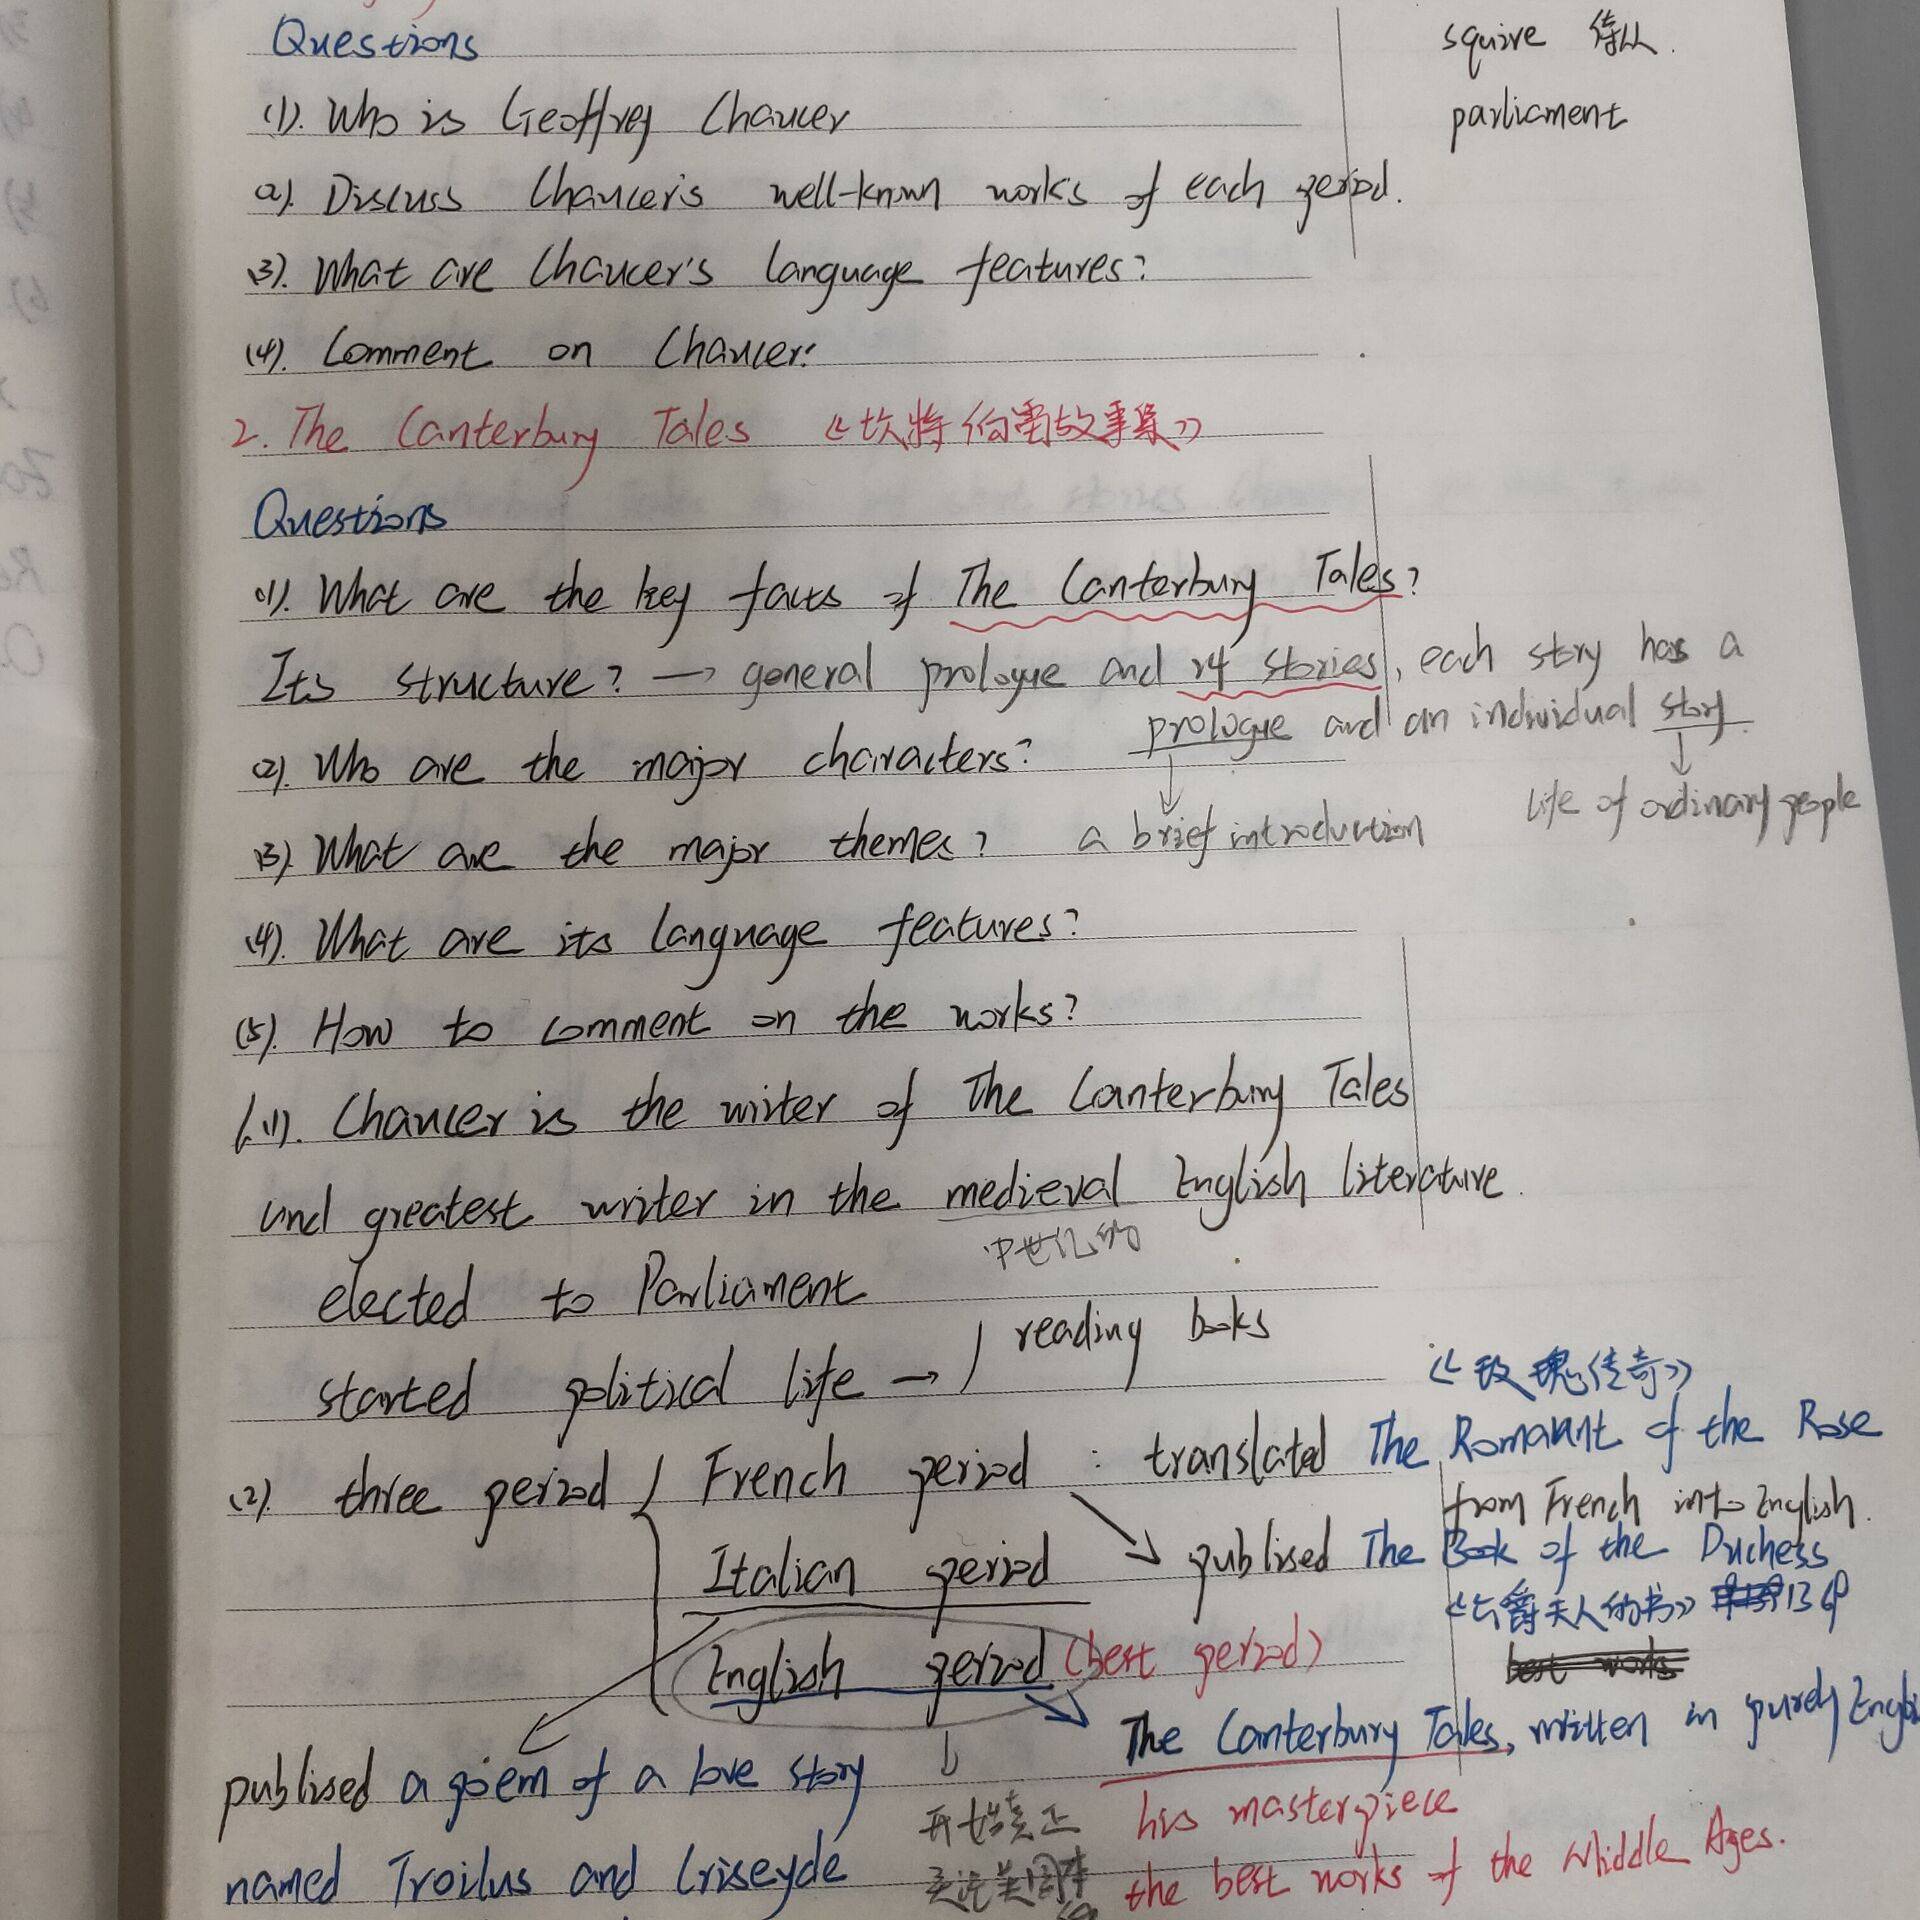 Questions
squire 侍从.
(1). Who is Geoffrey Chaucer
parliament
(2). Discuss Chaucer's well-known works of each period.
(3). What are Chaucer's language features?
(4). Comment on Chaucer.
2. The Canterbury Tales 《坎特伯雷故事集》
Questions
(1). What are the key facts of The Canterbury Tales?
Its structure? → general prologue and 24 stories, each story has a
prologue and an individual story.
(2). Who are the major characters?
life of ordinary people
(3). What are the major themes?
a brief introduction
(4). What are its language features?
(5). How to comment on the works?
1.(1). Chaucer is the writer of The Canterbury Tales
and greatest writer in the medieval English literature.
中世纪的
elected to Parliament
started political life → reading books
《玫瑰传奇》
(2). three period French period : translated The Romaunt of the Rose
from French into English.
Italian period publised The Book of the Duchess
《公爵夫人的书》 13
best works
English period (best period)
The Canterbury Tales, written in purely
publised a poem of a love story
his masterpiece
开始真正
named Troilus and Criseyde
the best works of the Middle Ages.